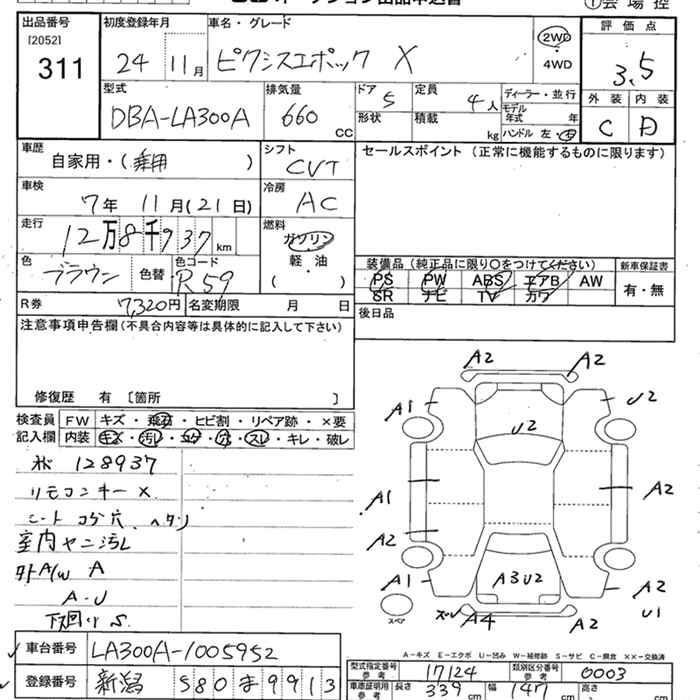 出品番号 初度登録年月 車名・グレード 評価点
[2052]
311 24年 11月 ピクシスエポック X 2WD・4WD 3.5
型式 排気量 ドア 定員 ディーラー・並行 外装 内装
DBA-LA300A 660cc 5 4人 モデル年式 年 C D
形状 積載 kg ハンドル 左・右
車歴 シフト セールスポイント(正常に機能するものに限ります)
自家用・(乗用) CVT
車検 冷房
7年 11月(21日) AC
走行 燃料
12万8千937km ガソリン
軽・油
( )
色 色替 色コード 装備品(純正品に限り○をつけてください) 新車保証書
ブラウン R59 PS PW ABS エアB AW 有・無
SR ナビ TV カワ
R券 7,320円 名変期限 月 日 後日品
注意事項申告欄(不具合内容等は具体的に記入して下さい)
修復歴 有 〔箇所 〕
検査員記入欄 FW キズ・飛石・ヒビ割・リペア跡・×要
内装 キズ・汚レ・コゲ・穴・スレ・キレ・破レ
128937
リモコンキー×
シート コゲ穴、ヘタリ
室内ヤニ汚レ
外A/W A
A-U
下廻りS
A2 A2
A1 U2
U2
A1 A2
A2
A1 A3U2 A2
スペア A4 A2 U1
A-キズ E-エクボ U-凹み W-補修跡 S-サビ C-腐食 ××-交換済
車台番号 LA300A-1005952
登録番号 新潟 580ま9913
型式指定番号 参考 17124 類別区分番号 参考 0003
車庫証明用 参考 長さ 339cm 幅 147cm 高さ cm